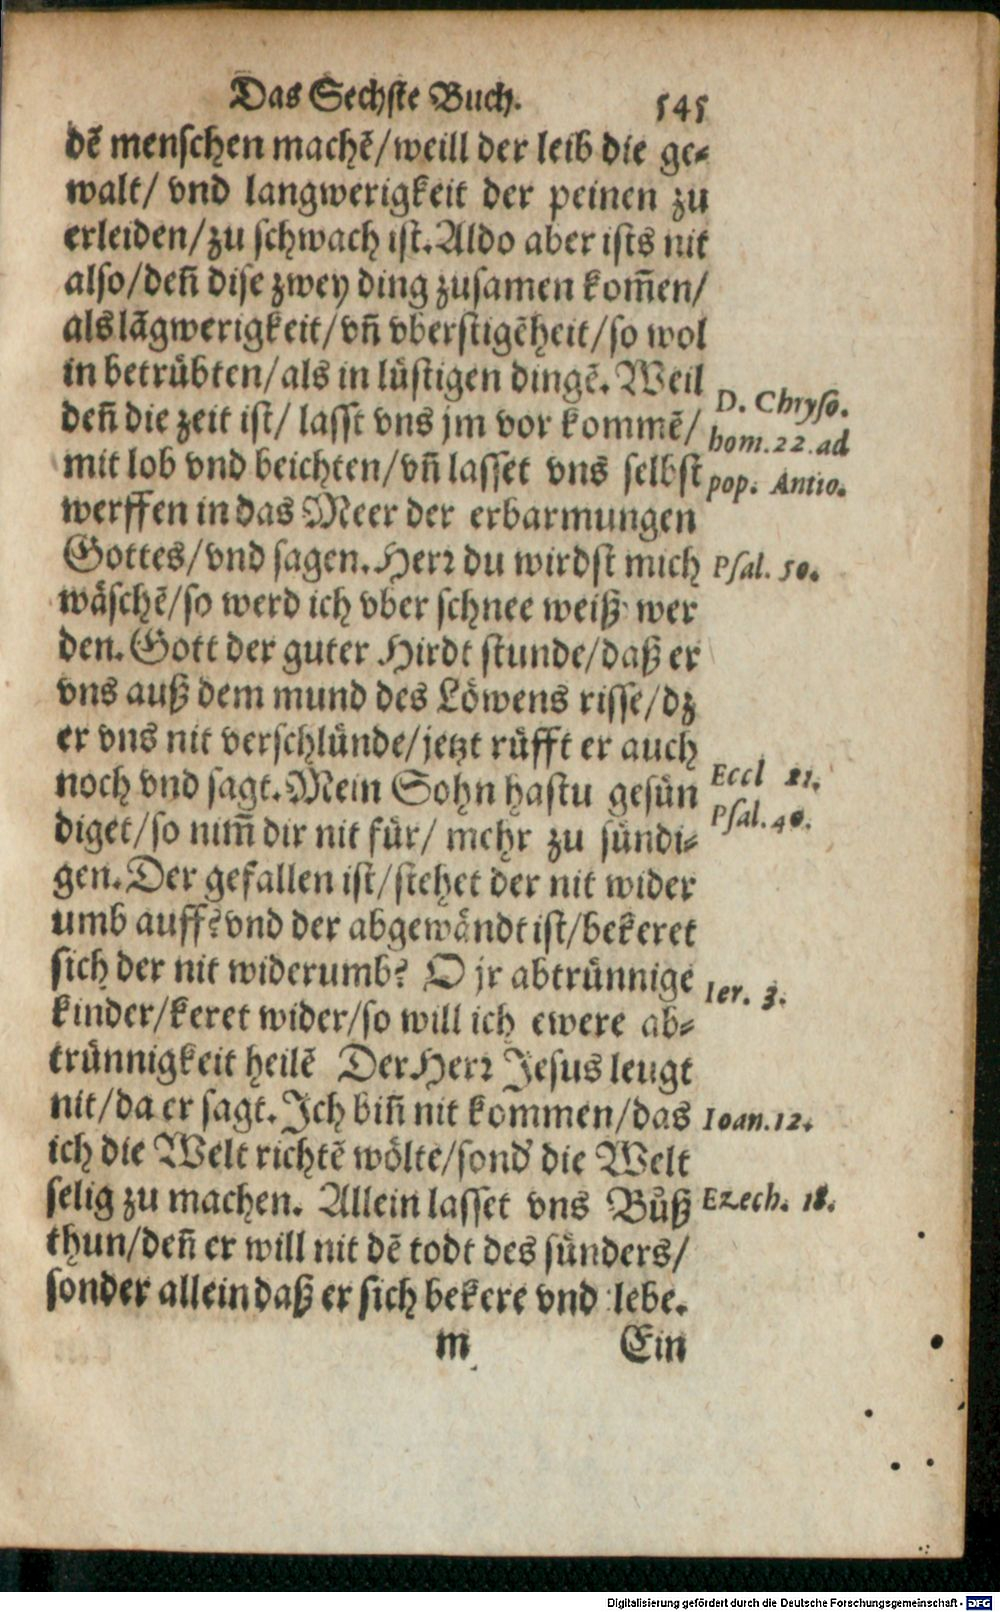 Das Sechste Buch. 545
dē menschen machē/weill der leib die ge-
walt/ vnd langwerigkeit der peinen zu
erleiden/zu schwach ist. Aldo aber ists nit
also/deñ dise zwey ding zusamen kom̃en/
als lãgwerigkeit/vñ vberstigẽheit/so wol
in betrübten/als in lüstigen dingẽ. Weil
deñ die zeit ist/ lasst vns jm vor kommẽ/
mit lob vnd beichten/vñ lasset vns selbst
werffen in das Meer der erbarmungen
Gottes/vnd sagen. Herr du wirdst mich
wäschẽ/so werd ich vber schnee weiß wer
den. Gott der guter Hirdt stunde/daß er
vns auß dem mund des Löwens risse/dz
er vns nit verschlünde/jetzt rüfft er auch
noch vnd sagt. Mein Sohn hastu gesün
diget/so nim̃ dir nit für/ mehr zu sündi-
gen. Der gefallen ist/stehet der nit wider
umb auff? vnd der abgewändt ist/bekeret
sich der nit widerumb? O jr abtrünnige
kinder/keret wider/so will ich ewere ab-
trünnigkeit heilẽ Der Herr Jesus leugt
nit/da er sagt. Ich biñ nit kommen/das
ich die Welt richtẽ wölte/sond' die Welt
selig zu machen. Allein lasset vns Büß
thun/deñ er will nit dẽ todt des sünders/
sonder allein daß er sich bekere vnd lebe.
m Ein
D. Chryso.
hom. 22. ad
pop. Antio.
Psal. 50.
Eccl 21.
Psal. 40.
Ier. 3.
Ioan. 12.
Ezech. 18.
Digitalisierung gefördert durch die Deutsche Forschungsgemeinschaft - DFG